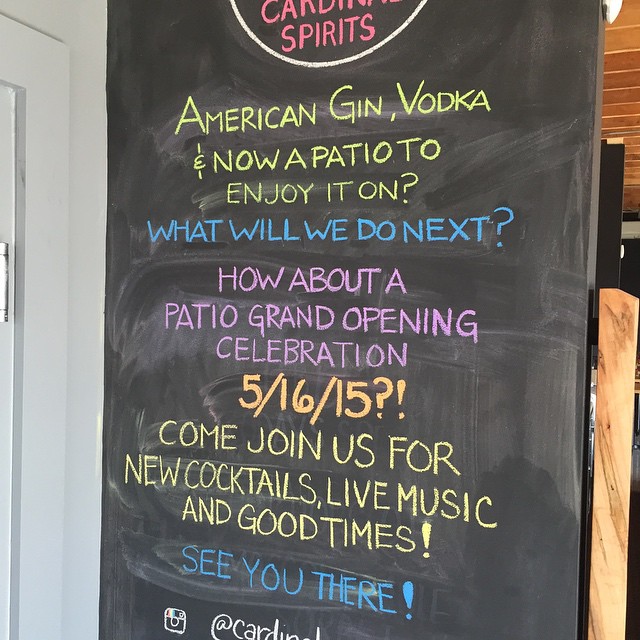 CARDINAL
SPIRITS
AMERICAN GIN, VODKA
& NOW A PATIO TO
ENJOY IT ON?
WHAT WILL WE DO NEXT?
HOW ABOUT A
PATIO GRAND OPENING
CELEBRATION
5/16/15?!
COME JOIN US FOR
NEW COCKTAILS, LIVE MUSIC
AND GOOD TIMES!
SEE YOU THERE!